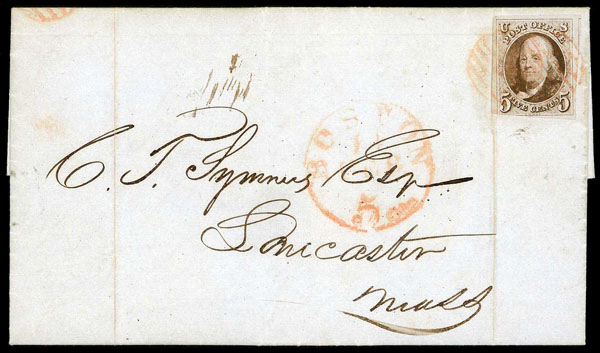 U S
POST OFFICE
FIVE CENTS
5 5
BOSTON
5
C. T. Symmes Esq
Lancaster
Mass